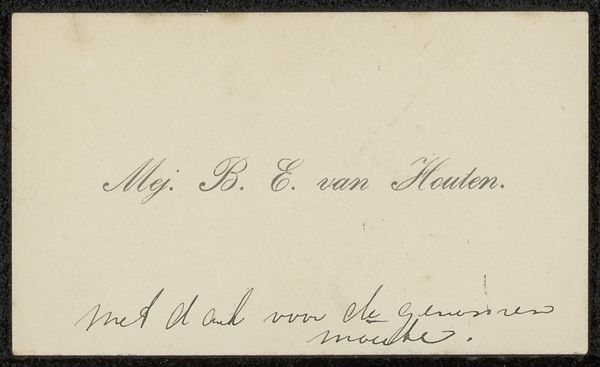 Mej. B. E. van Houten.
met dank voor de genomen
moeite.